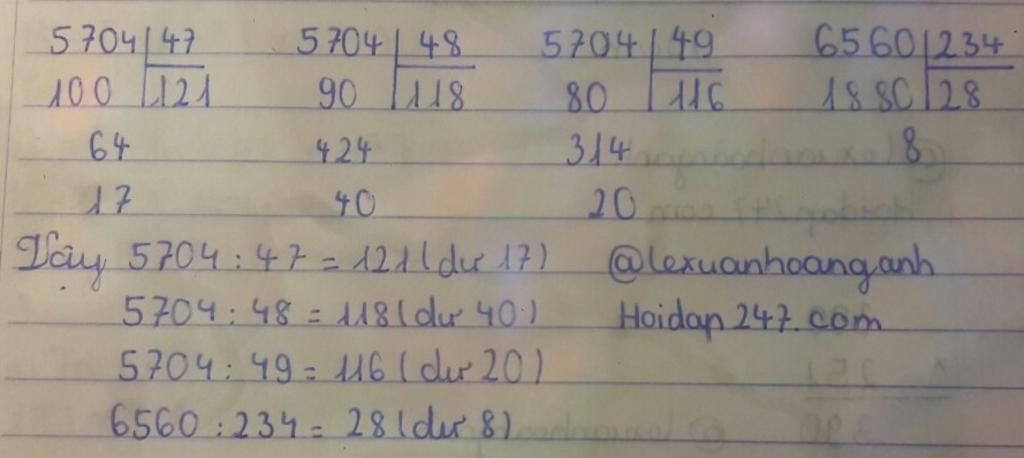 5704 47 5704 48 5704 49 6560 234
100 121 90 118 80 116 1880 28
64 424 314 8
17 40 20
Vậy 5704 : 47 = 121 (dư 17) @lexuanhoanganh
5704 : 48 = 118 (dư 40) Hoidap 247.com
5704 : 49 = 116 (dư 20)
6560 : 234 = 28 (dư 8)